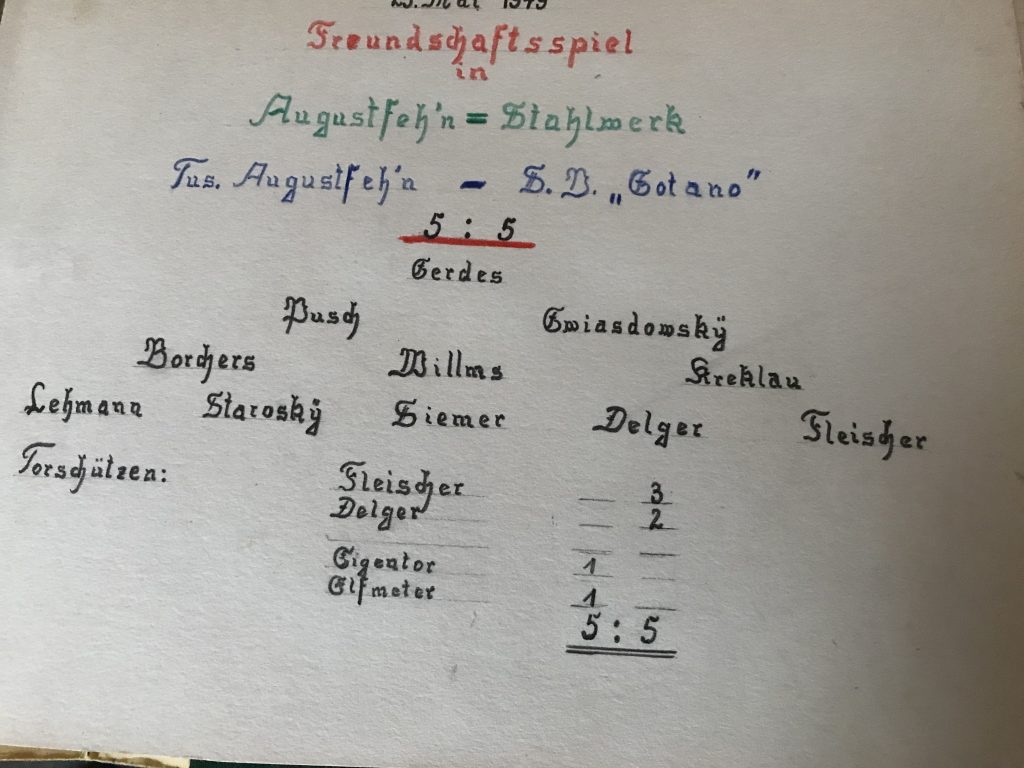 Mai 1949
Freundschaftsspiel
in
Augustfeh'n = Stahlwerk
Tus. Augustfeh'n - S. V. „Gotano”
5 : 5
Gerdes
Pusch Gwiasdowskÿ
Borchers Willms Kreklau
Lehmann Staroskÿ Siemer Delger Fleischer
Torschützen: Fleischer — 3
Delger — 2
— —
Eigentor 1 —
Elfmeter 1 —
5 : 5